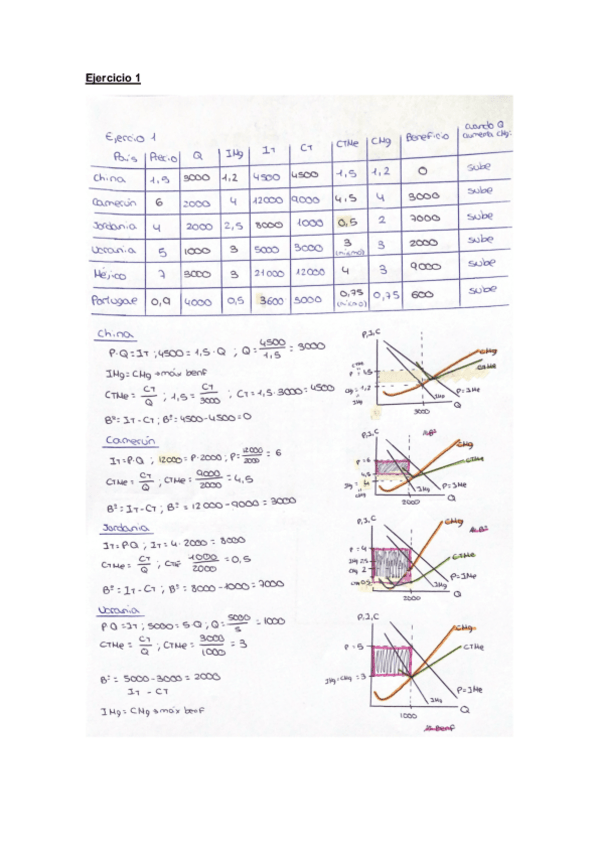 Ejercicio 1
Ejercicio 1
País Precio Q IMg IT CT CTMe CMg Beneficio cuando Q aumenta CMg:
China 1,5 3000 1,2 4500 4500 1,5 1,2 0 sube
Camerún 6 2000 4 12000 9000 4,5 4 3000 sube
Jordania 4 2000 2,5 8000 1000 0,5 2 7000 sube
Ucrania 5 1000 3 5000 3000 3 (mínimo) 3 2000 sube
Méjico 7 3000 3 21000 12000 4 3 9000 sube
Portugal 0,9 4000 0,5 3600 3000 0,75 (mínimo) 0,75 600 sube
China
P·Q = IT ; 4500 = 1,5·Q ; Q = 4500/1,5 = 3000
IMg = CMg → máx benf
CTMe = CT/Q ; 1,5 = CT/3000 ; CT = 1,5·3000 = 4500
Bº = IT - CT ; Bº = 4500 - 4500 = 0
P,I,C
CMg
CTMe
CTMe
P = 1,5
CMg = 1,2
IMg
IMg
P = IMe
3000
Q
Camerún
IT = P·Q ; 12000 = P·2000 ; P = 12000/2000 = 6
CTMe = CT/Q ; CTMe = 9000/2000 = 4,5
Bº = IT - CT ; Bº = 12000 - 9000 = 3000
P,I,C
CMg
CTMe
P = 6
4,5
IMg
P = IMe
2000
Q
Jordania
IT = P·Q ; IT = 4·2000 = 8000
CTMe = CT/Q ; 1000/2000 = 0,5
Bº = IT - CT ; Bº = 8000 - 1000 = 7000
P,I,C
CMg
P = 4
IMg 2,5
CMg 2
CTMe
P = IMe
IMg
2000
Q
Ucrania
P·Q = IT ; 5000 = 5·Q ; Q = 5000/5 = 1000
CTMe = CT/Q ; CTMe = 3000/1000 = 3
Bº = 5000 - 3000 = 2000
IT - CT
IMg = CMg → máx benf
P,I,C
CMg
CTMe
P = 5
IMg = CMg = 3
P = IMe
IMg
1000
Q